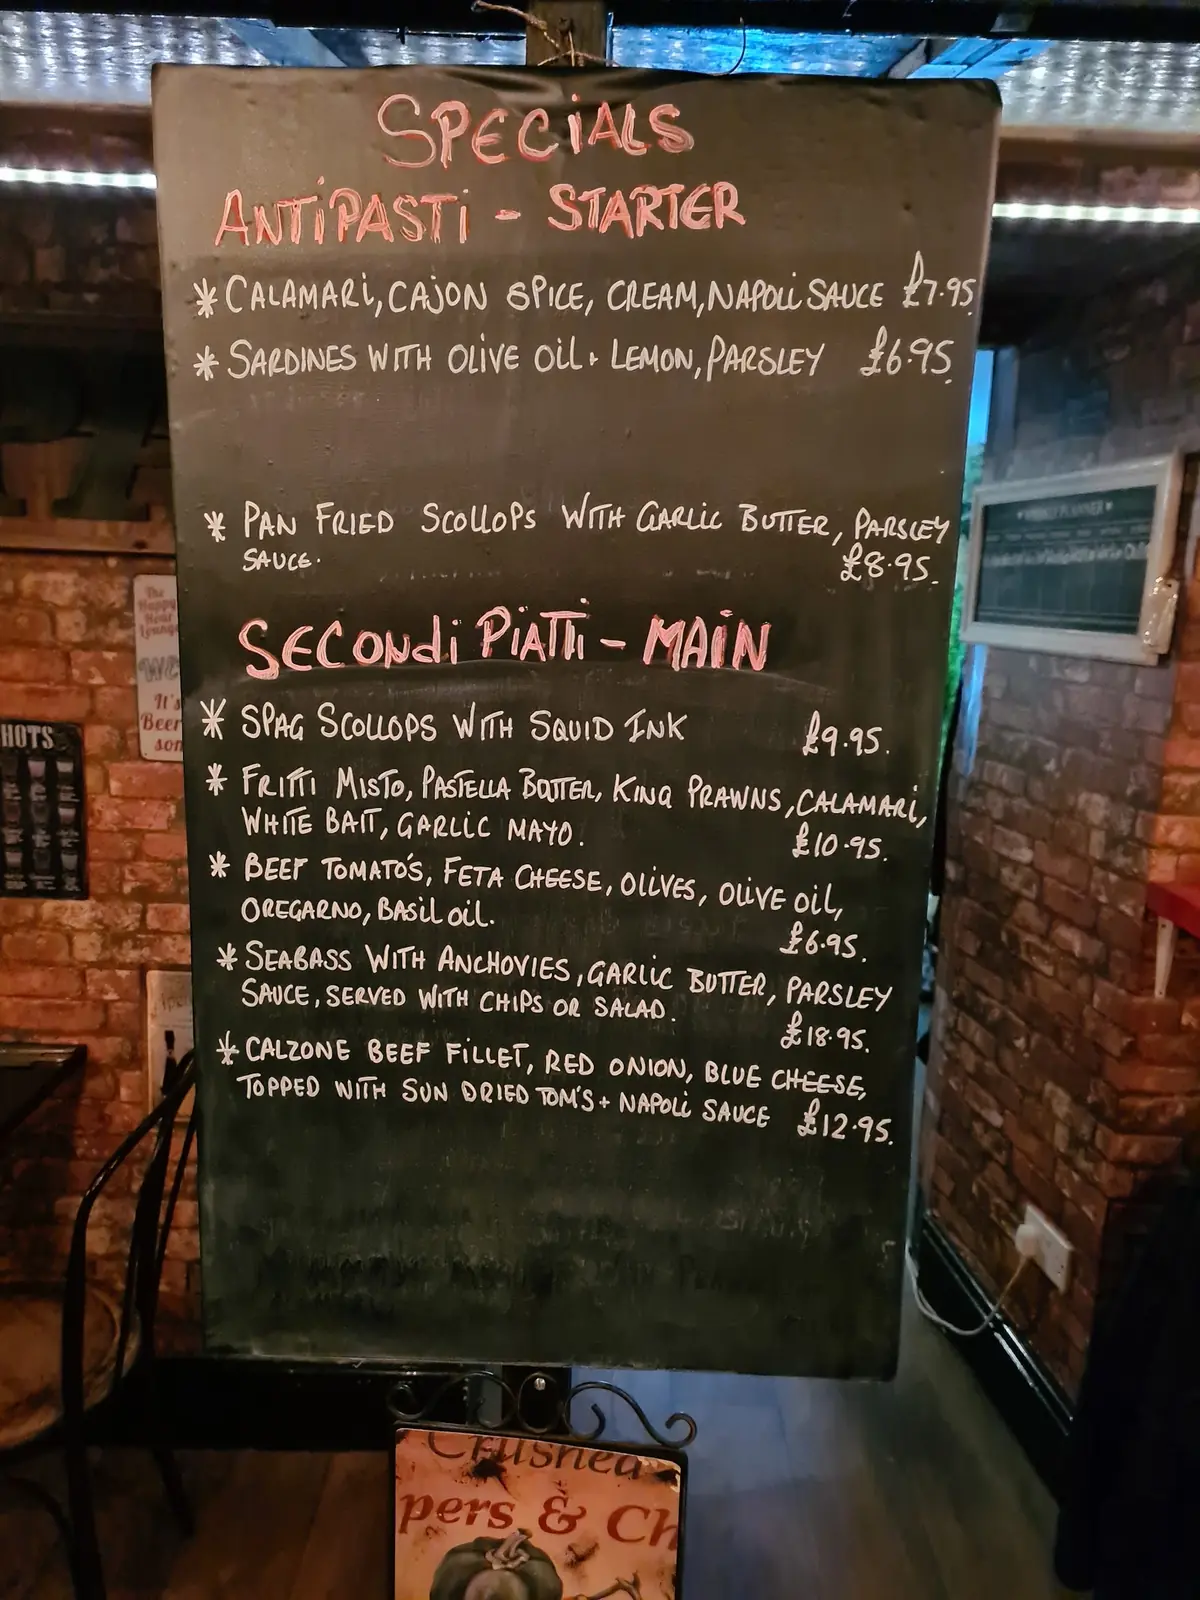 SPECIALS
ANTIPASTI - STARTER
* CALAMARI, CAJON SPICE, CREAM, NAPOLI SAUCE £7.95
* SARDINES WITH OLIVE OIL + LEMON, PARSLEY £6.95.
* PAN FRIED SCOLLOPS WITH GARLIC BUTTER, PARSLEY
SAUCE. £8.95.
SECONDI PIATTI - MAIN
* SPAG SCOLLOPS WITH SQUID INK £9.95.
* FRITTI MISTO, PASTELLA BATTER, KING PRAWNS, CALAMARI,
WHITE BAIT, GARLIC MAYO. £10.95.
* BEEF TOMATO'S, FETA CHEESE, OLIVES, OLIVE OIL,
OREGARNO, BASIL OIL. £6.95.
* SEABASS WITH ANCHOVIES, GARLIC BUTTER, PARSLEY
SAUCE, SERVED WITH CHIPS OR SALAD. £18.95.
* CALZONE BEEF FILLET, RED ONION, BLUE CHEESE,
TOPPED WITH SUN DRIED TOM'S + NAPOLI SAUCE £12.95.
The
Happy
Hour
Lounge
It's
Beer
HOTS
PLANNER
Crushed
pers & Ch